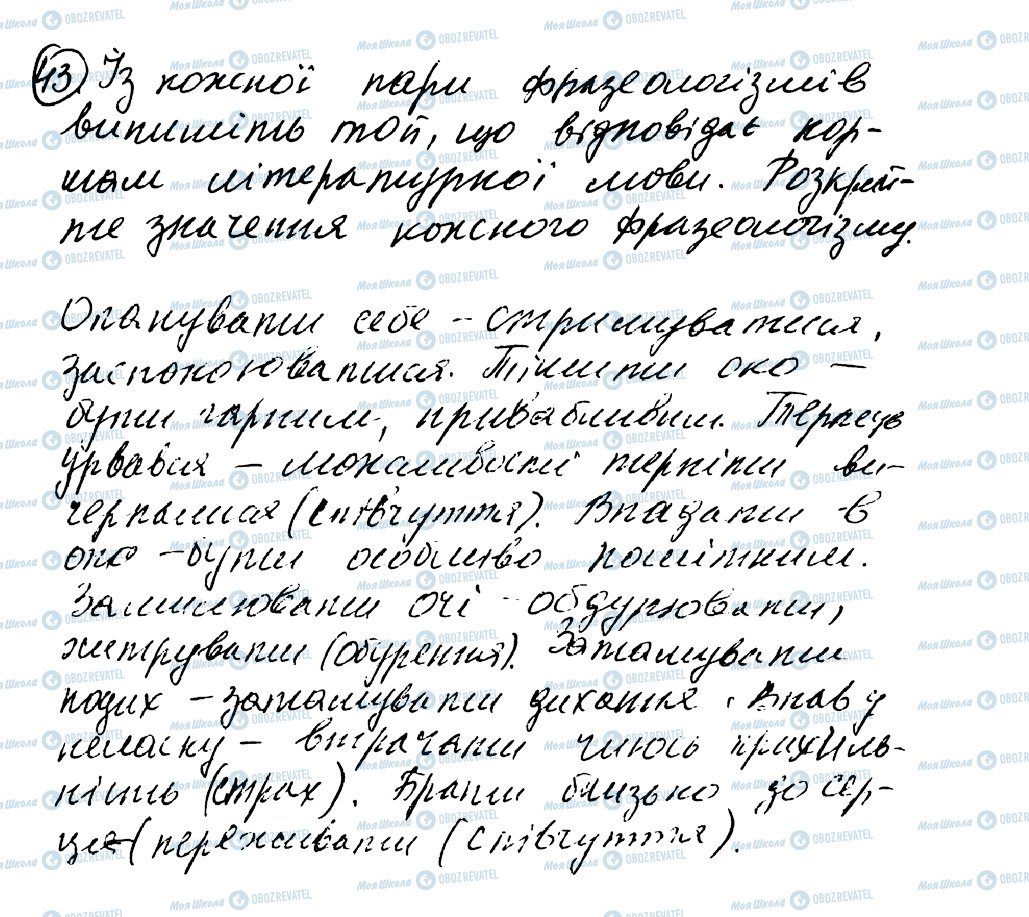 43. Із кожної пари фразеологізмів
випишіть той, що відповідає нор-
мам літературної мови. Розкрий-
те значення кожного фразеологізму.
Опанувати себе – стримуватися,
заспокоюватися. Тішити око –
бути гарним, привабливим. Терпець
урвався – можливості терпіти ви-
черпалися (співчуття). Впадати в
око – бути особливо помітним.
Замилювати очі – обдурювати,
хитрувати (обурення). Затамувати
подих – затамувати дихання. Впав у
неласку – втрачати чиюсь прихиль-
ність (страх). Брати близько до сер-
ця – (переживати (співчуття).